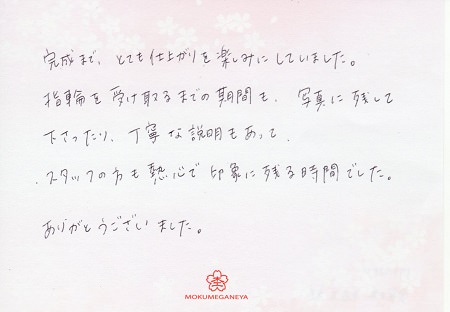 完成まで、とても仕上がりを楽しみにしていました。
指輪を受け取るまでの期間も、写真に残して
下さったり、丁寧な説明もあって、
スタッフの方も熱心で印象に残る時間でした。
ありがとうございました。
MOKUMEGANEYA